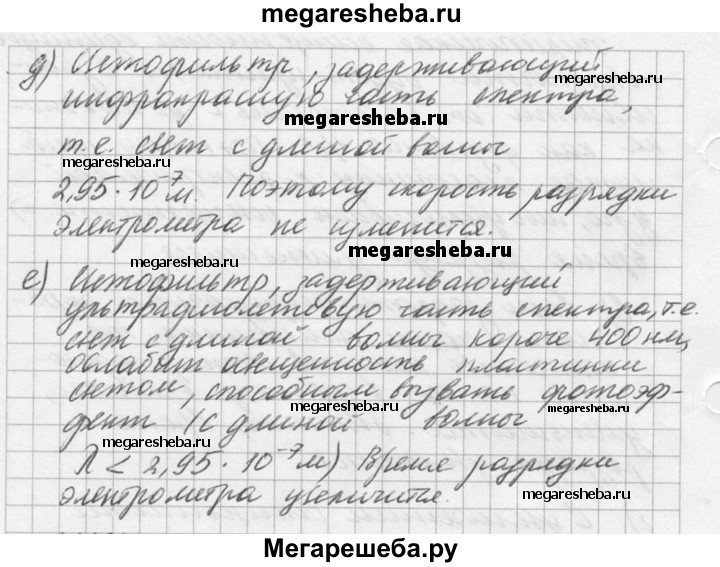 megaresheba.ru
д) Светофильтр, задерживающий
megaresheba.ru
инфракрасную часть спектра,
megaresheba.ru
т.е. свет с длиной волны
megaresheba.ru
megaresheba.ru
2,95·10⁻⁷м. Поэтому скорость разрядки
электрометра не изменится.
megaresheba.ru
megaresheba.ru
е) Светофильтр, задерживающий
ультрафиолетовую часть спектра, т.е.
свет с длиной волны короче 400 нм,
megaresheba.ru
ослабит освещенность пластинки
светом, способным вызвать фотоэф-
megaresheba.ru
megaresheba.ru
фект (с длиной волны
λ < 2,95·10⁻⁷м) Время разрядки
megaresheba.ru
электрометра увеличится.
megaresheba.ru
Мегарешеба.ру